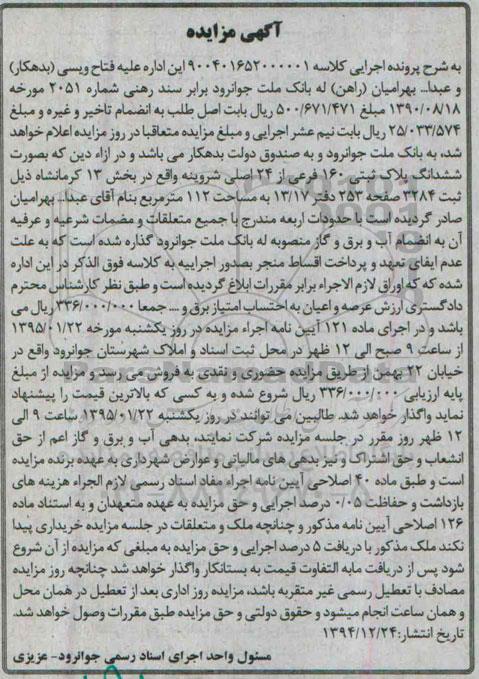 آگهی مزایده
به شرح پرونده اجرایی کلاسه ۹۰۰۴۰۱۶۵۲۰۰۰۰۰۱ این اداره علیه فتاح ویسی (بدهکار)
و عبدا... بهرامیان (راهن) له بانک ملت جوانرود برابر سند رهنی شماره ۲۰۵۱ مورخه
۱۳۹۰/۰۸/۱۸ مبلغ ۵۰۰/۶۷۱/۴۷۱ ریال بابت اصل طلب به انضمام تاخیر و غیره و مبلغ
۲۵/۰۳۳/۵۷۴ ریال بابت نیم عشر اجرایی و مبلغ مزایده متعاقبا در روز مزایده اعلام خواهد
شد، به بانک ملت جوانرود و به صندوق دولت بدهکار می باشد و در ازاء دین که بصورت
ششدانگ پلاک ثبتی ۱۶۰ فرعی از ۲۴ اصلی شروینه واقع در بخش ۱۳ کرمانشاه ذیل
ثبت ۳۲۸۴ صفحه ۲۵۳ دفتر ۱۳/۱۷ به مساحت ۱۱۲ مترمربع بنام آقای عبدا... بهرامیان
صادر گردیده است با حدودات اربعه مندرج با جمیع متعلقات و مضمات شرعیه و عرفیه
آن به انضمام آب و برق و گاز منصوبه له بانک ملت جوانرود گذارده شده است که به علت
عدم ایفای تعهد و پرداخت اقساط منجر بصدور اجراییه به کلاسه فوق الذکر در این اداره
شده که که اوراق لازم الاجراء برابر مقررات ابلاغ گردیده است و طبق نظر کارشناس محترم
دادگستری ارزش عرصه و اعیان به احتساب امتیاز برق و .... جمعا ۳۳۶/۰۰۰/۰۰۰ ریال می
باشد و در اجرای ماده ۱۲۱ آیین نامه اجراء مزایده در روز یکشنبه مورخه ۱۳۹۵/۰۱/۲۲
از ساعت ۹ صبح الی ۱۲ ظهر در محل ثبت اسناد و املاک شهرستان جوانرود واقع در
خیابان ۲۲ بهمن از طریق مزایده حضوری و نقدی به فروش می رسد و مزایده از مبلغ
پایه ارزیابی ۳۳۶/۰۰۰/۰۰۰ ریال شروع شده و به کسی که بالاترین قیمت را پیشنهاد
نماید واگذار خواهد شد. طالبین می توانند در روز یکشنبه ۱۳۹۵/۰۱/۲۲ ساعت ۹ الی
۱۲ ظهر روز مقرر در جلسه مزایده شرکت نمایند، بدهی آب و برق و گاز اعم از حق
انشعاب و حق اشتراک و نیز بدهی های مالیاتی و عوارض شهرداری به عهده برنده مزایده
است و طبق ماده ۴۰ اصلاحی آیین نامه اجراء مفاد اسناد رسمی لازم الجراء هزینه های
بازداشت و حفاظت ۰/۰۵ درصد اجرایی و حق مزایده به عهده متعهدان و به استناد ماده
۱۲۶ اصلاحی آیین نامه مذکور و چنانچه ملک و متعلقات در جلسه مزایده خریداری پیدا
نکند ملک مذکور با دریافت ۵ درصد اجرایی و حق مزایده به مبلغی که مزایده از آن شروع
شود پس از دریافت مابه التفاوت قیمت به بستانکار واگذار خواهد شد چنانچه روز مزایده
مصادف با تعطیل رسمی غیر متقربه باشد، مزایده روز اداری بعد از تعطیل در همان محل
و همان ساعت انجام میشود و حقوق دولتی و حق مزایده طبق مقررات وصول خواهد شد.
تاریخ انتشار: ۱۳۹۴/۱۲/۲۴
مسئول واحد اجرای اسناد رسمی جوانرود- عزیزی